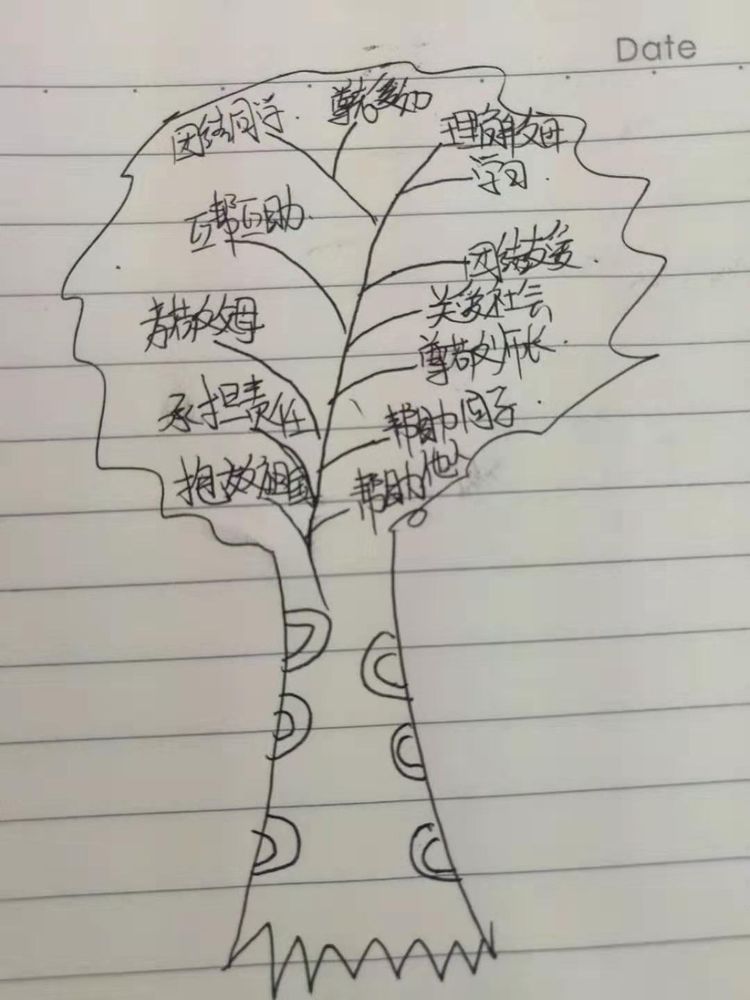 Date
团结同学.
尊老爱幼
理解父母
学习.
互帮互助.
团结友爱.
关爱社会
孝敬父母
尊敬师长.
承担责任
帮助同学.
报效祖国
帮助他人